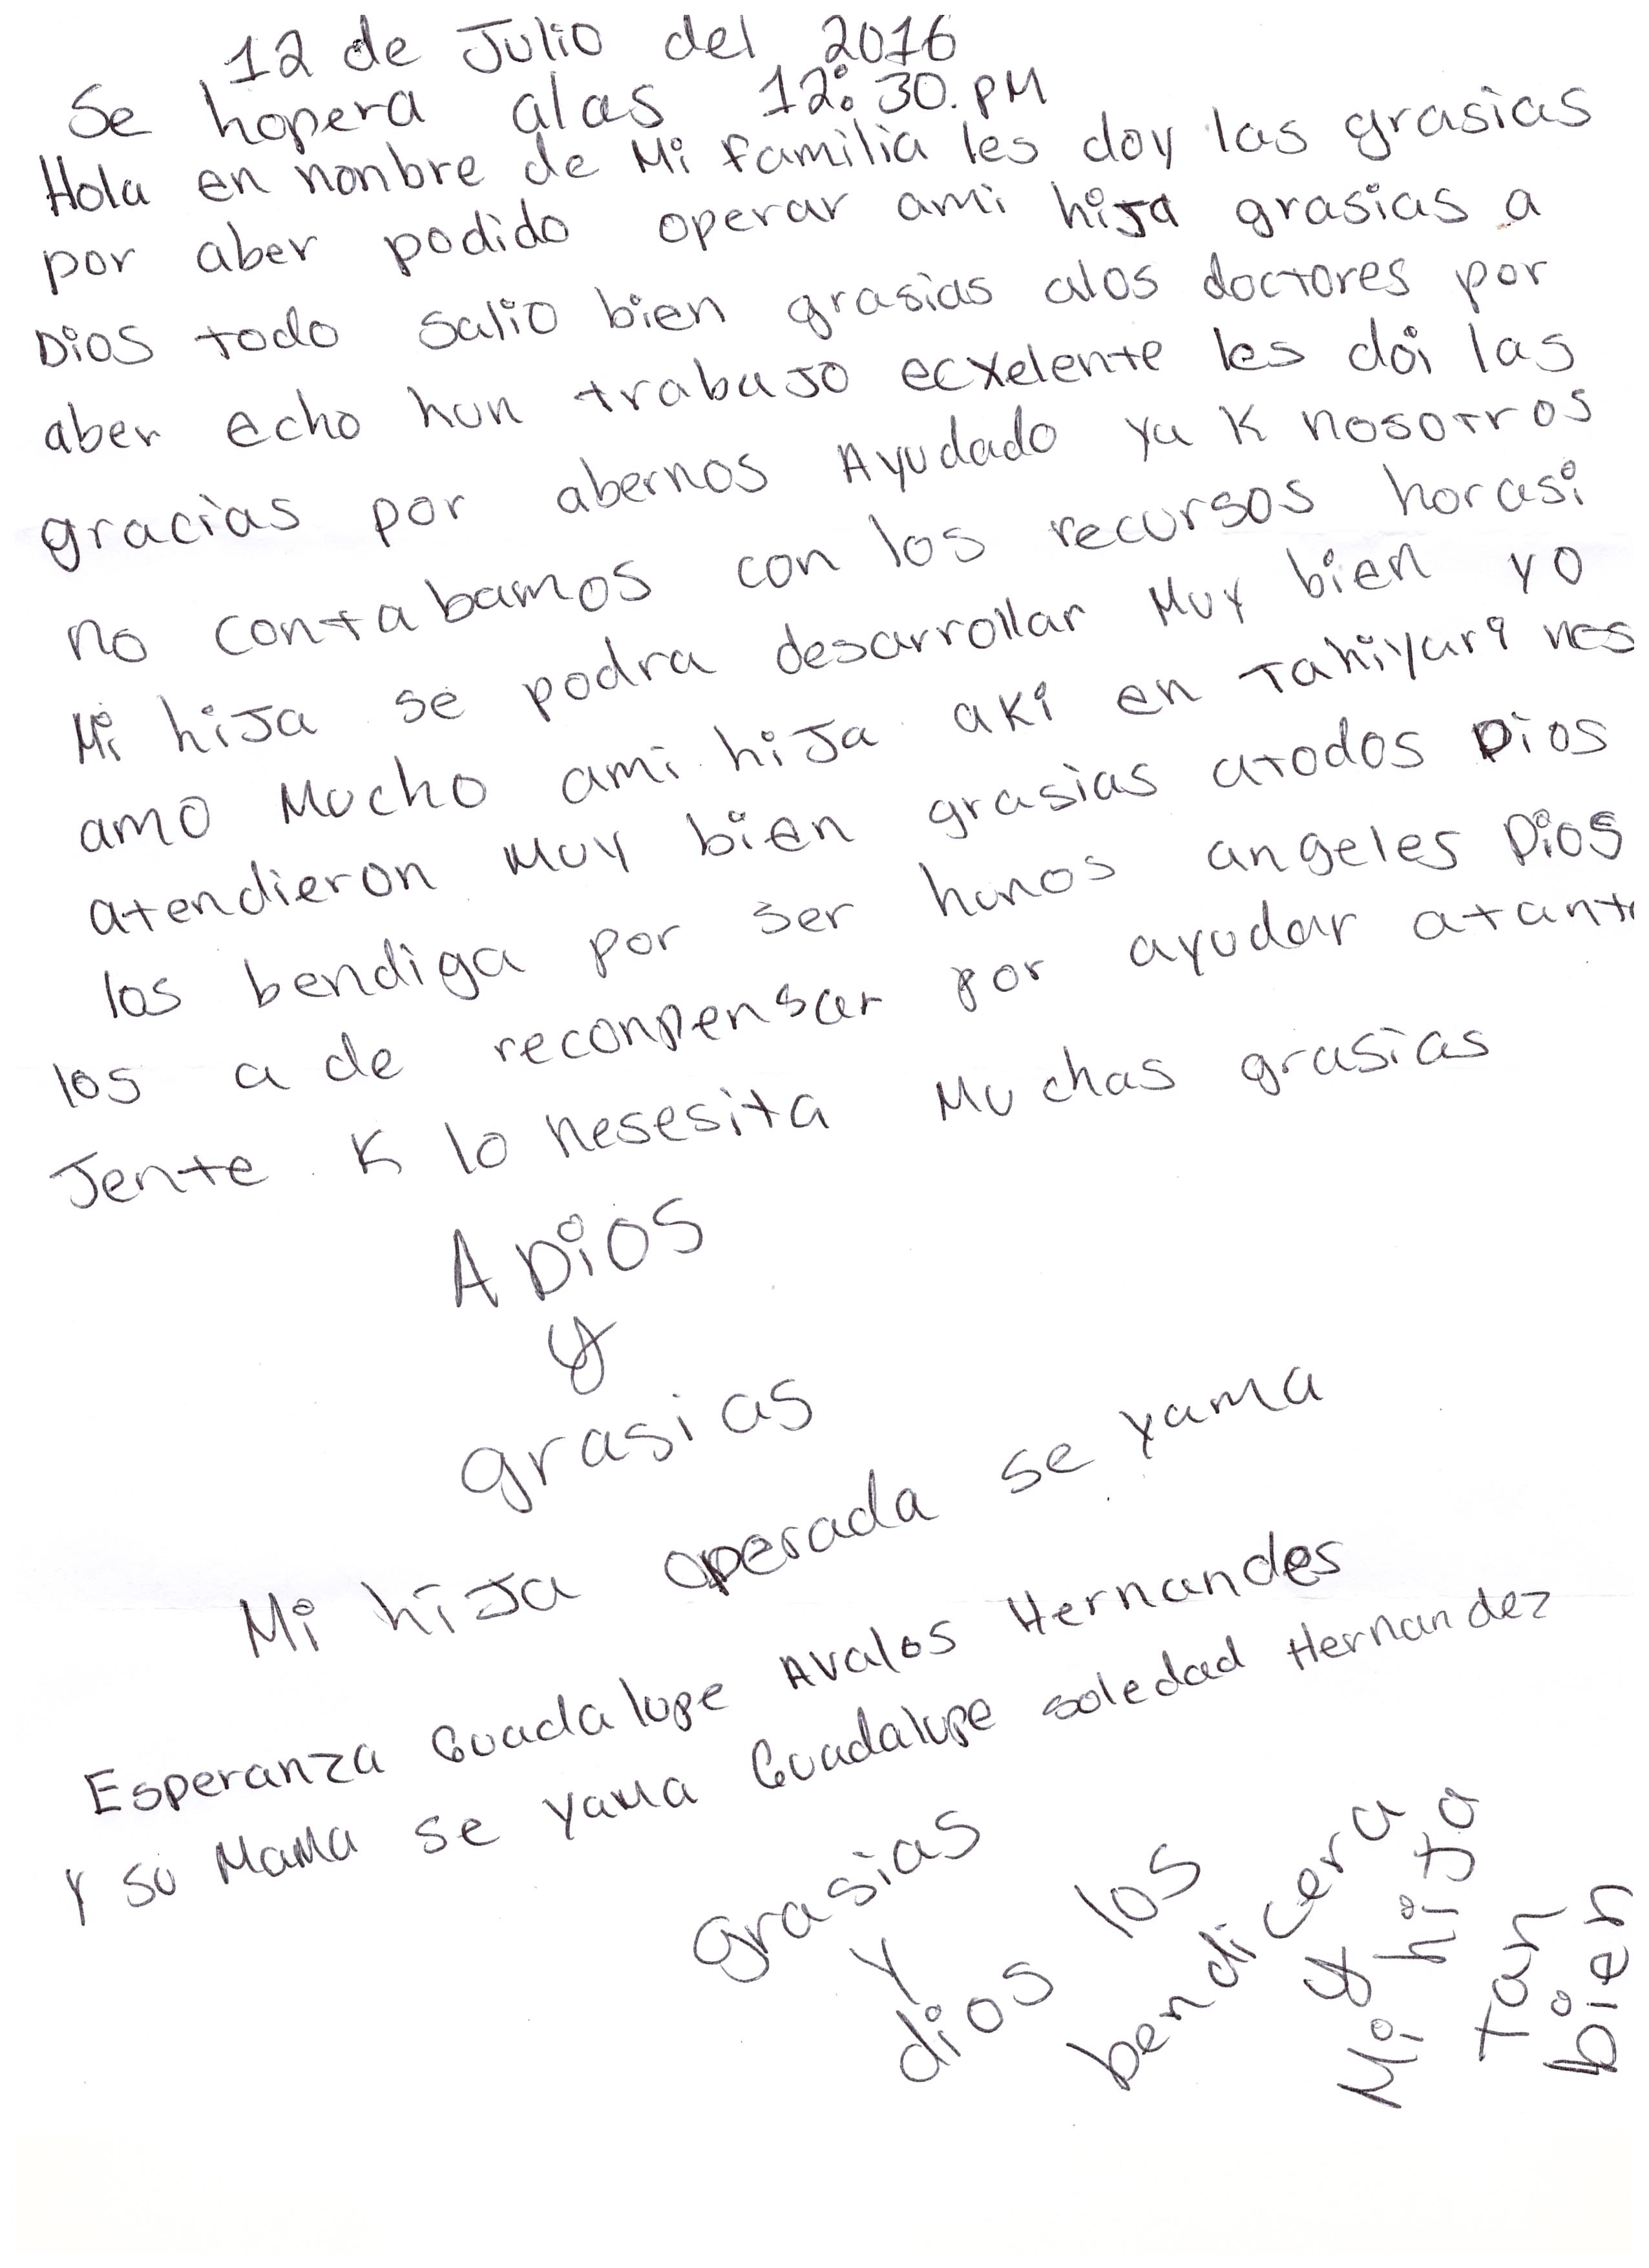 12 de Julio del 2016
Se hopera alas 12:30.pM
Hola en nonbre de Mi familia les doy las grasias
por aber podido operar ami hiJa grasias a
Dios todo salio bien grasias alos doctores por
aber echo hun trabaJo ecxelente les doi las
gracias por abernos Ayudado ya K nosotros
no contabamos con los recursos horasi
Mi hiJa se podra desarrollar Muy bien yo
amo Mucho ami hiJa aki en Tahiyari nos
atendieron Muy bien grasias atodos Dios
los bendiga por ser hunos angeles Dios
los a de reconpensar por ayudar atant
Jente K lo nesesita Muchas grasias
A Dios
y
grasias
Mi hiJa operada se yama
Esperanza Guadalupe Avalos Hernandes
Y su MaMa se yaMa Guadalupe soledad Hernandez
grasias
y
dios los
bendicera
y
Mi hiJa
Tan
bien